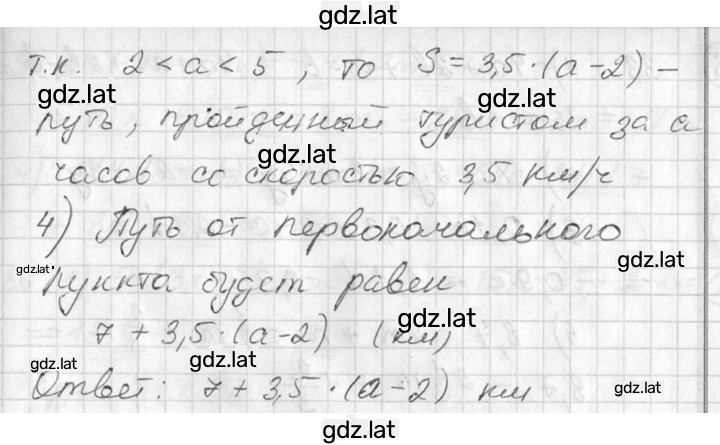 gdz.lat
т.к. 2 < a < 5, то S = 3,5·(a-2) –
gdz.lat gdz.lat
путь, пройденный туристом за a
gdz.lat
часов со скоростью 3,5 км/ч
4) Путь от первоначального
gdz.lat gdz.lat
пункта будет равен
gdz.lat
7 + 3,5·(a-2) (км)
gdz.lat gdz.lat gdz.lat
Ответ: 7 + 3,5·(a-2) км
gdz.lat